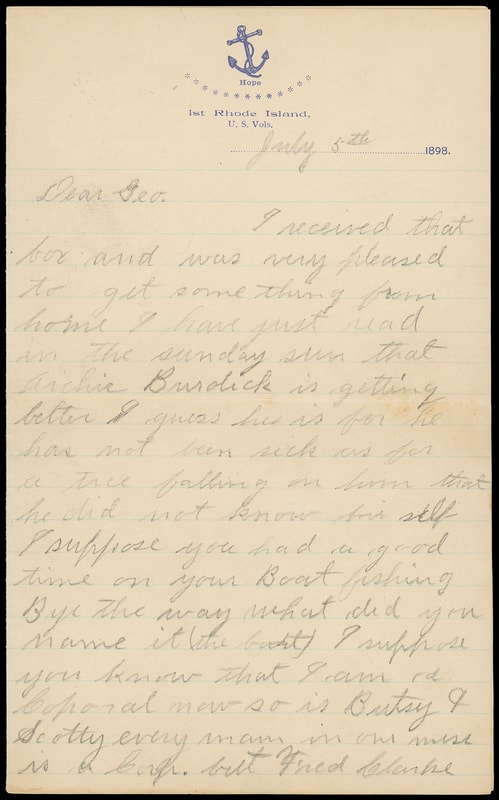 Hope
1st Rhode Island,
U. S. Vols.
July 5th 1898.
Dear Geo.
I received that
box and was very pleased
to get some thing from
home I have just read
in the sunday sun that
Archie Burdick is getting
better I guess he is for he
has not been sick as for
a tree falling on him that
he did not know him self
I suppose you had a good
time on your Boat fishing
Bye the way what did you
name it (the boat) I suppose
you know that I am a
Coporal now so is Butsy &
Scotty every man in our mess
is a Corp. but Fred Clarke